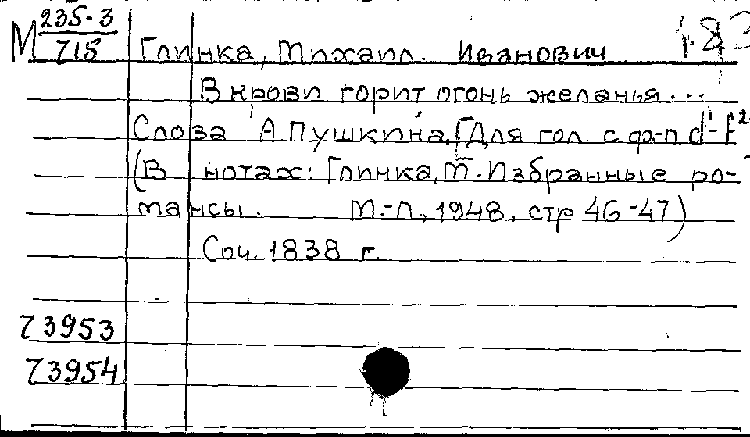 М 235-3 1.83
718 Глинка, Михаил. Иванович
В крови горит огонь желанья...
Слова А.Пушкина. [Для гол с ф-п d¹-f²
(В нотах: Глинка, М. Избранные ро-
мансы. М.-Л., 1948, стр 46-47)
Соч. 1838 г.
73953
73954